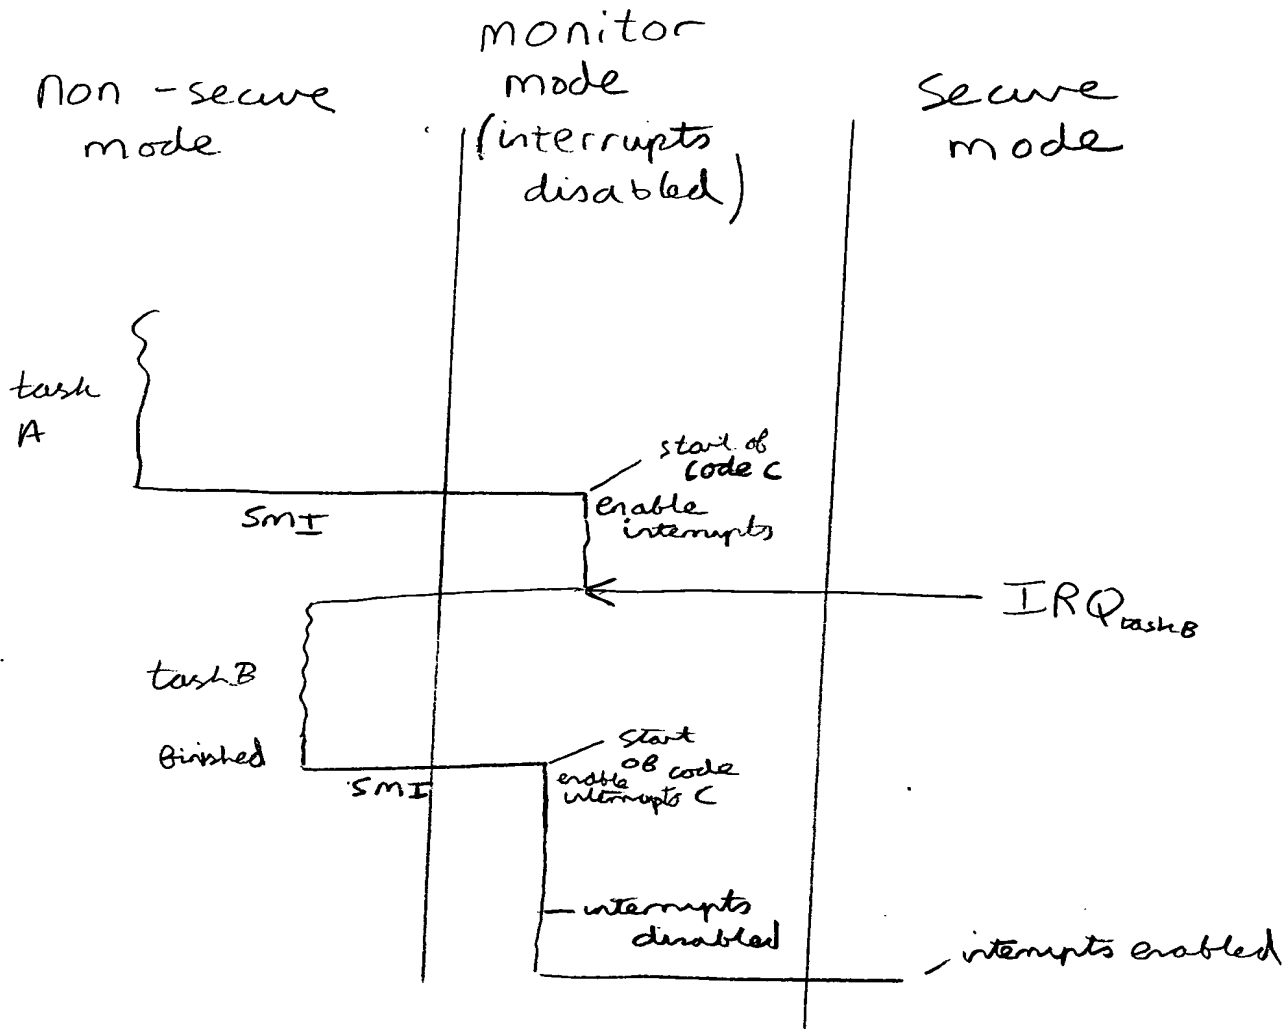 non-secure
mode
monitor
mode
(interrupts
disabled)
secure
mode
task
A
start of
code C
SMI
enable
interrupts
IRQ task B
task B
finished
start
of code
C
SMI
enable
interrupts
interrupts
disabled
interrupts enabled